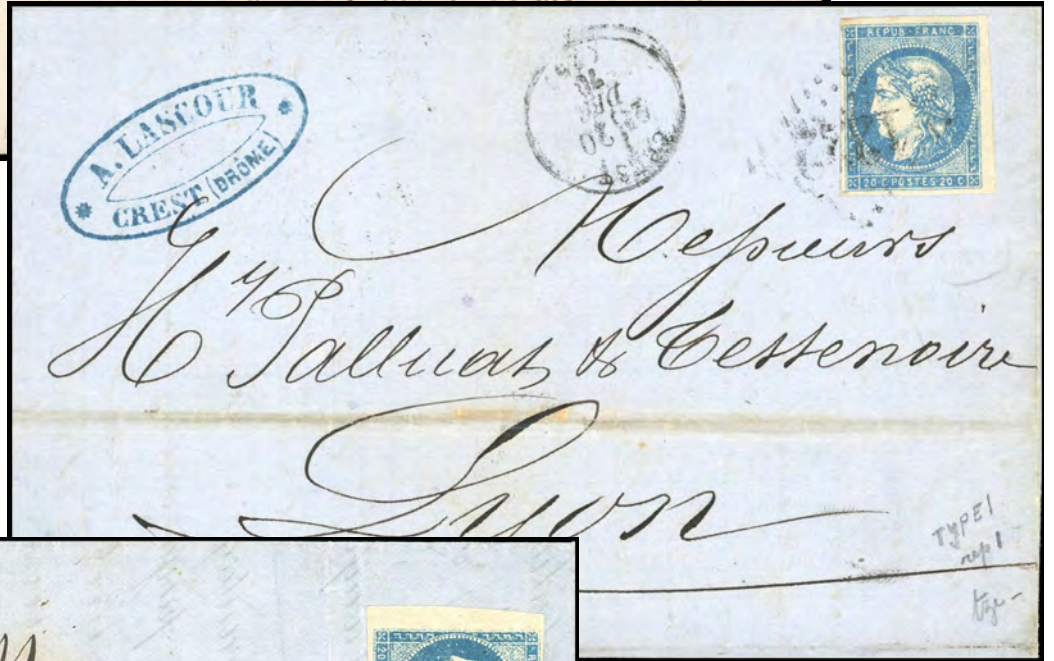 A. LASCOUR
CREST (DRÔME)
20
DEC
REPUB · FRANC
20 · C · POSTES · 20 C
Messieurs
Hy Palluat & Testenoire
Lyon
TYPE I
rep 1
20